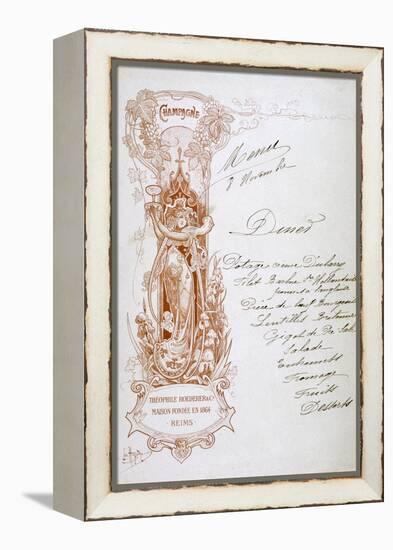 CHAMPAGNE
Menu
8 Novembre
Diner
Potage creme Dubarry
Filet Barbue Ste
pommes a l'anglaise
Pièce de boeuf Bourgeoise
Lentilles Bretonne
Gigot de Pré Salé
Salade
Entremets
Fromage
Fruits
Desserts
THÉOPHILE ROEDERER & Co
MAISON FONDÉE EN 1864
REIMS